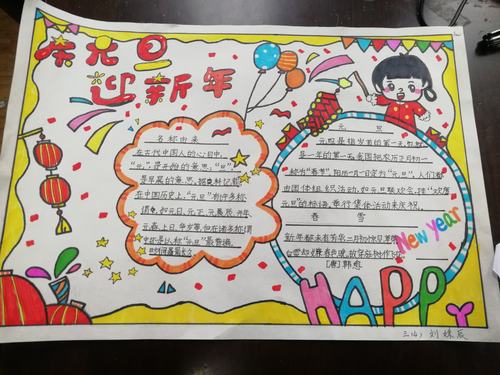 庆元旦
迎新年
名称由来
在古代中国人的心目中,
"元",是开始的意思,"旦"
是早晨的意思,据史料记载
在中国历史上,"元旦"有许多称
谓,如元日、元正、元辰、元春、元朔
但在诸多称
谓中还是以称"元旦"最普遍,
时间最长久
元旦
元旦是指岁首的第一天,也就
是一年的第一天,我国把农历正月初一
称为"春节",把一月一日定为"元旦",人们有
由团体组织活动,如元旦联欢会,挂"欢度
元旦"的标语,举行集体活动来庆祝。
春雪
新年都未有芳华,二月初惊见草芽
白雪却嫌春色晚,故穿庭树作飞花
[唐]韩愈
NEW year
HAPPY
三(4)刘姝辰